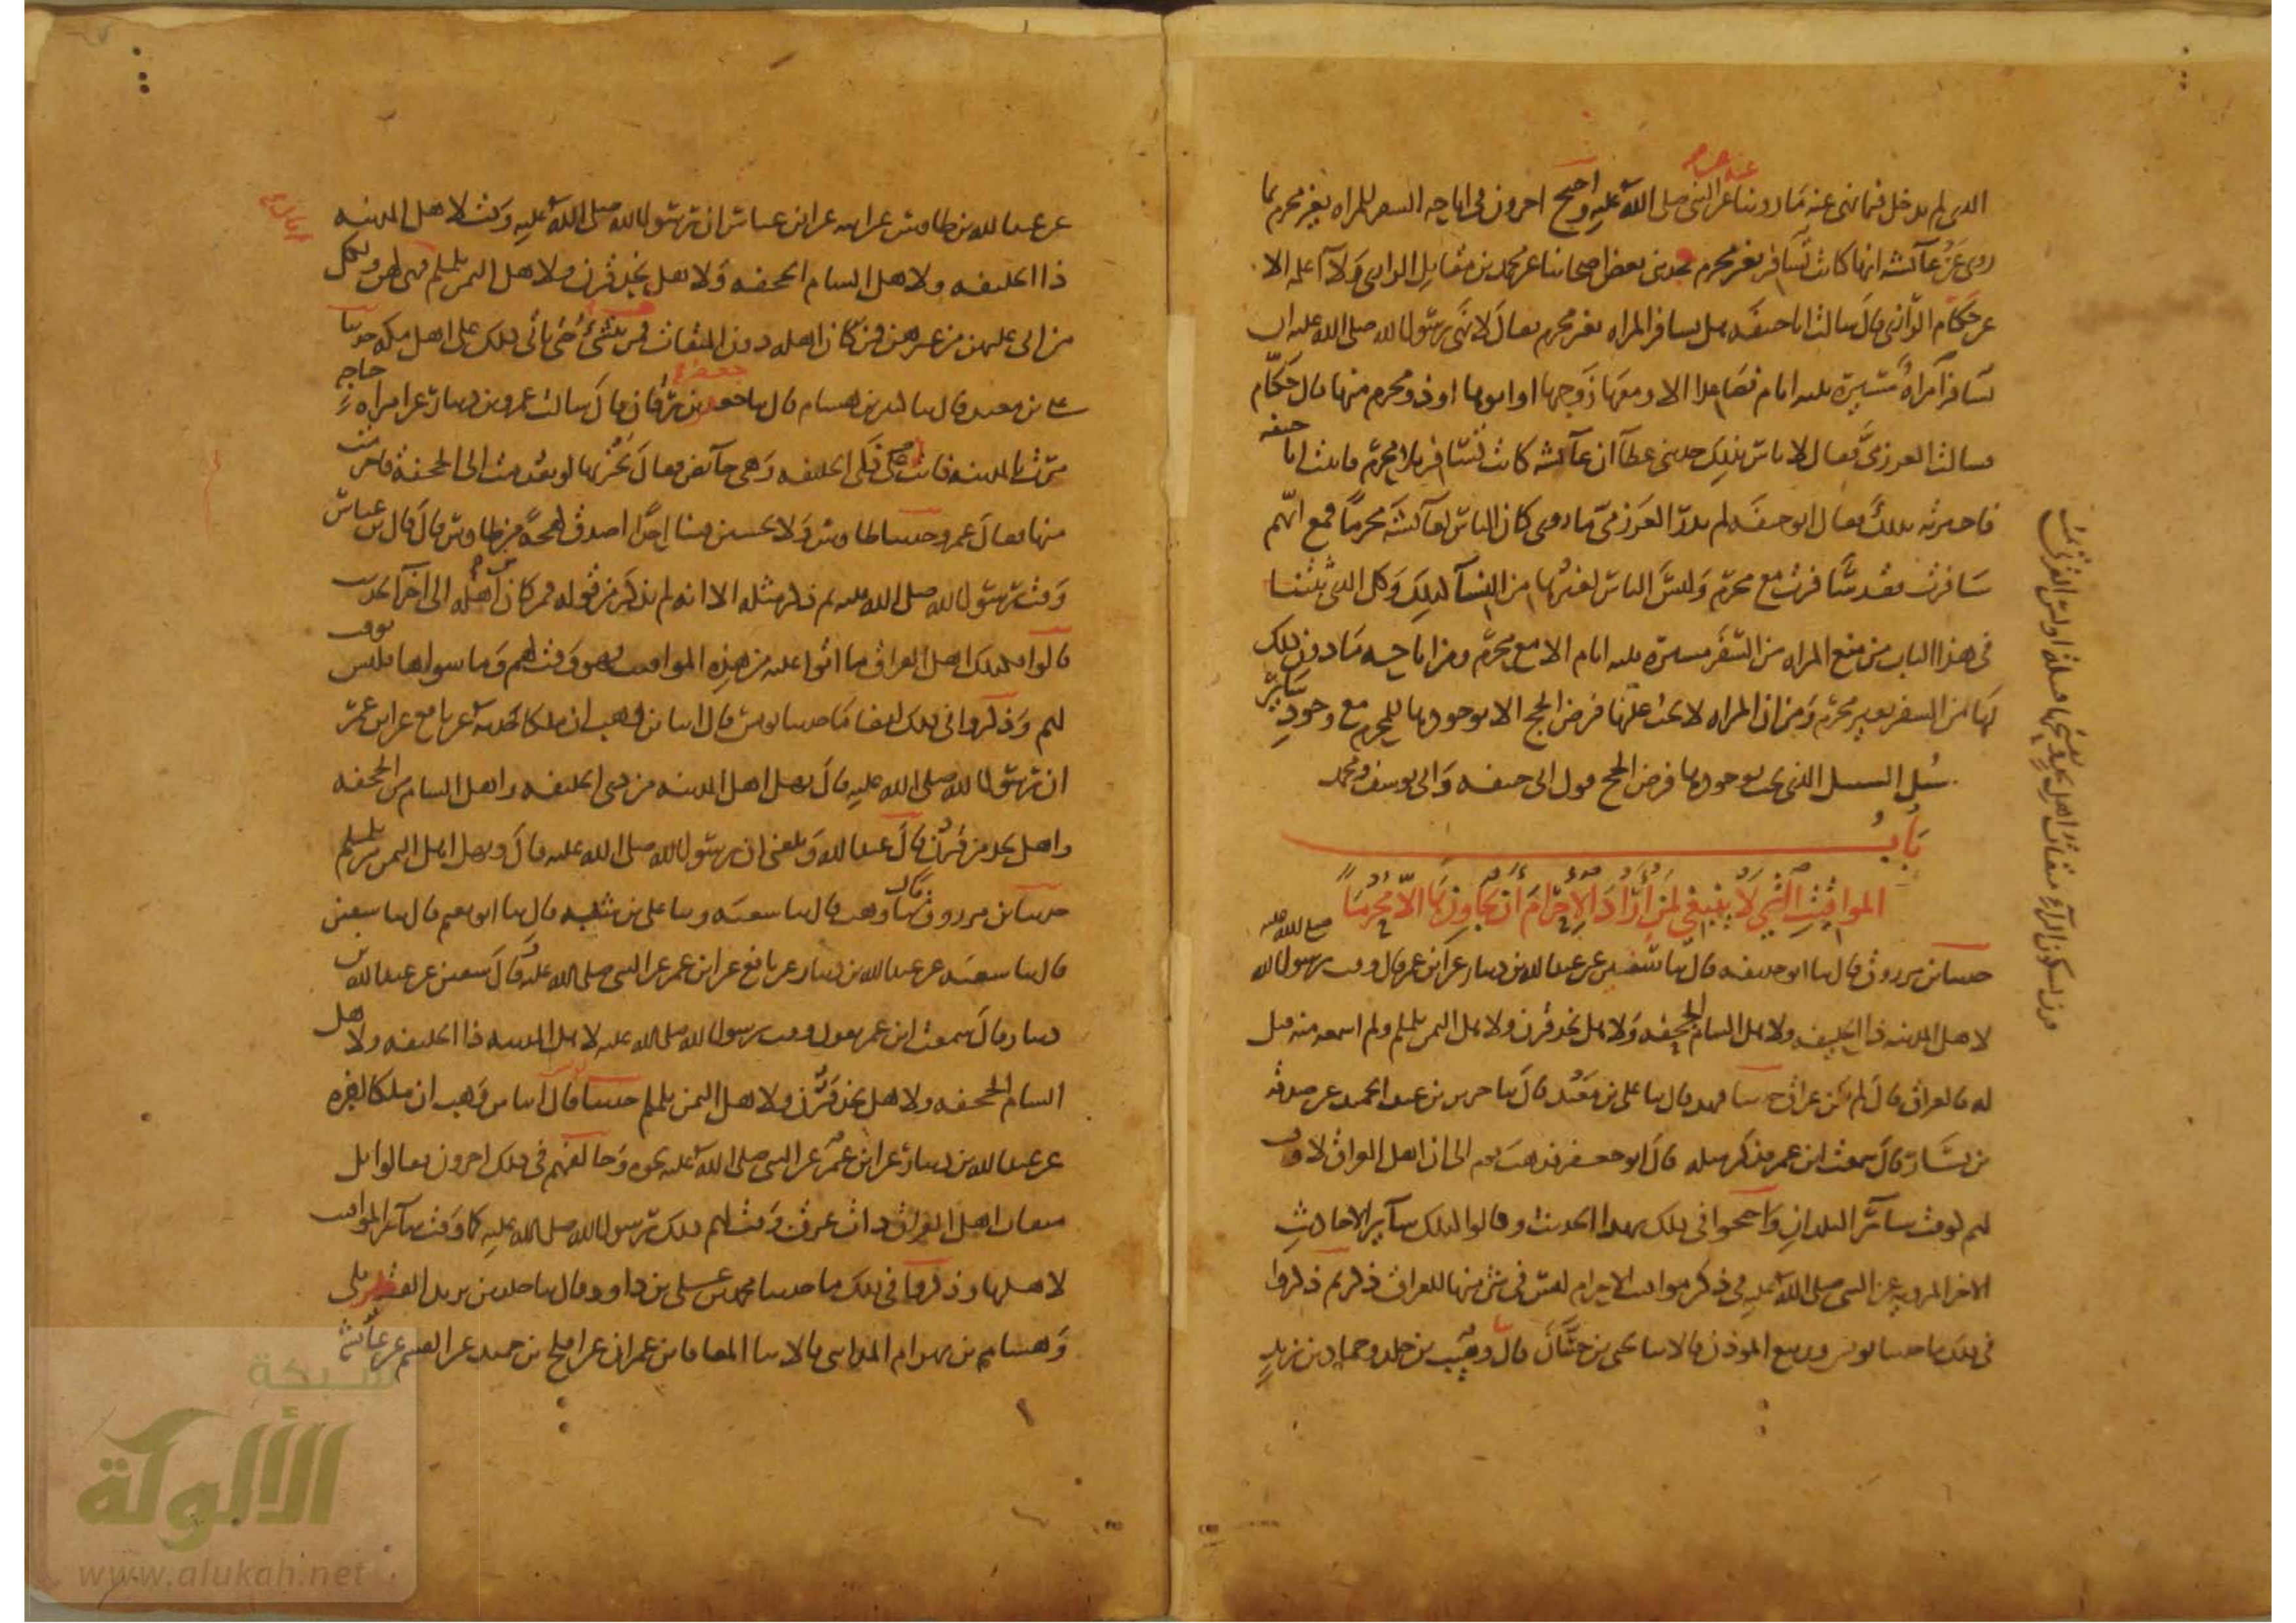 الذي لم يدخل فيما نهى عنه ما روينا عن النبي صلى الله عليه واحتج اخرون في اباحه السفر للمراه بغير محرم بما
روى عن عآئشه انها كانت تسافر بغير محرم حدثني بعض اصحابنا عن محمد بن مقاتل الرازي ولا اعلمه الا
عن حكام الرازي قال سالت ابا حنيفه هل تسافر المراه بغير محرم فقال لا نهى رسول الله صلى الله عليه ان
تسافر امراة مسيرة ثلثه ايام فصاعدا الا ومعها زوجها او ابوها او ذو محرم منها قال حكام
فسالت العرزمي فقال لا باس بذلك حدثني عطآ ان عآئشه كانت تسافر بلا محرم فاتيت ابا حنيفه
فاخبرته بذلك فقال ابو حنيفه لم يدر العرزمي ما روى كان الناس لعآئشة محرما فمع ايهم
سافرت فقد سافرت مع محرم وليس الناس لغيرها من النسآ كذلك وكل الذي بينا
في هذا الباب من منع المراه من السفر مسيرة ثلثه ايام الا مع محرم ومن اباحه ما دون ذلك
لها من السفر بغير محرم ومن ان المراه لا يجب عليها فرض الحج الا بوجودها للمحرم مع وجود سائر
سبل السبيل الذي يجب بوجودها فرض الحج قول ابي حنيفه وابي يوسف ومحمد
باب
المواقيت التي لا ينبغي لمن اراد الاحرام ان يجاوزها الا محرما
حدثنا ابن مرزوق قال ثنا ابو حذيفه قال ثنا سفين عن عبد الله بن دينار عن ابن عمر قال وقت رسول الله صلى الله عليه
لاهل المدينه ذا الحليفه ولاهل الشام الجحفه ولاهل نجد قرن ولاهل اليمن يلملم ولم اسمعه منه قيل
له فالعراق قال لم يكن عراق حدثنا فهد قال ثنا علي بن معبد قال ثنا جرير بن عبد الحميد عن صدقه
بن يسار قال سمعت ابن عمر فذكر مثله قال ابو جعفر فذهب قوم الى ان اهل العراق لا وقت
لهم كوقت سآئر البلدان واحتجوا في ذلك بهذا الحديث وقالوا كذلك سآير الاحاديث
الاخر المرويه عن النبي صلى الله عليه في ذكر مواقيت الاحرام ليس في شئ منها للعراق ذكر ثم ذكروا
في ذلك ما حدثنا يونس وربيع الموذن قالا ثنا يحيى بن حسان قال وهيب بن خلد وحماد بن زيد
عن عبد الله بن طاوس عن ابيه عن ابن عباس ان رسول الله صلى الله عليه وقت لاهل المدينه
ذا الحليفه ولاهل الشام الجحفه ولاهل نجد قرن ولاهل اليمن يلملم فهى لهن ولكل
من اتى عليهن من غيرهن فمن كان اهله دون الميقات فمن ينشئ حتى ياتي ذلك على اهل مكه حدثنا
علي بن معبد قال ثنا كثير بن هشام قال ثنا جعفر بن برقان قال سالت عمرو بن دينار عن امراه حاجه
مرت بالمدينه فاتت ذى الحليفه وهى حآئض فقال لو تقدمت الى الجحفة فاحرمت
منها فقال عمرو حدثنا طاوس ولا تحسبن فينا احدا اصدق لهجة من طاوس قال قال ابن عباس
وقت رسول الله صلى الله عليه ثم ذكر مثله الا انه لم يذكر من قوله فمن كان اهله الى اخر الحديث
قالوا فكذلك اهل العراق ما اتوا عليه من هذه المواقيت فهو وقت لهم وما سواها فليس بوقت
لهم وذكروا في ذلك ايضا ما حدثنا يونس قال انبا ابن وهب ان ملكا حدثه عن نافع عن ابن عمر
ان رسول الله صلى الله عليه قال يهل اهل المدينه من ذي الحليفه واهل الشام من الجحفه
واهل نجد من قرن قال عبد الله وبلغني ان رسول الله صلى الله عليه قال ويهل اهل اليمن من يلملم
حدثنا ابن مرزوق قال ثنا وهب قال ثنا شعبه وثنا علي بن شيبه قال ثنا ابو نعيم قال ثنا سفين
قال ثنا شعبه عن عبد الله بن دينار عن نافع عن ابن عمر عن النبي صلى الله عليه وقال سفين عن عبد الله بن
دينار قال سمعت ابن عمر يقول وقت رسول الله صلى الله عليه لاهل المدينه ذا الحليفه ولاهل
الشام الجحفه ولاهل نجد قرن ولاهل اليمن يلملم حدثنا يونس قال انبا ابن وهب ان ملكا اخبره
عن عبد الله بن دينار عن ابن عمر عن النبي صلى الله عليه نحوه وخالفهم في ذلك اخرون فقالوا بل
ميقات اهل العراق ذات عرق وقت لهم ذلك رسول الله صلى الله عليه كما وقت سآئر المواقيت
لاهلها وذكروا في ذلك ما حدثنا محمد بن علي بن داود قال ثنا خلد بن يزيد القطربلى
وهشام بن بهرام المدايني قالا ثنا المعافا بن عمران عن افلح بن حميد عن القسم عن عآئشة
شبكة
الألوكة
www.alukah.net